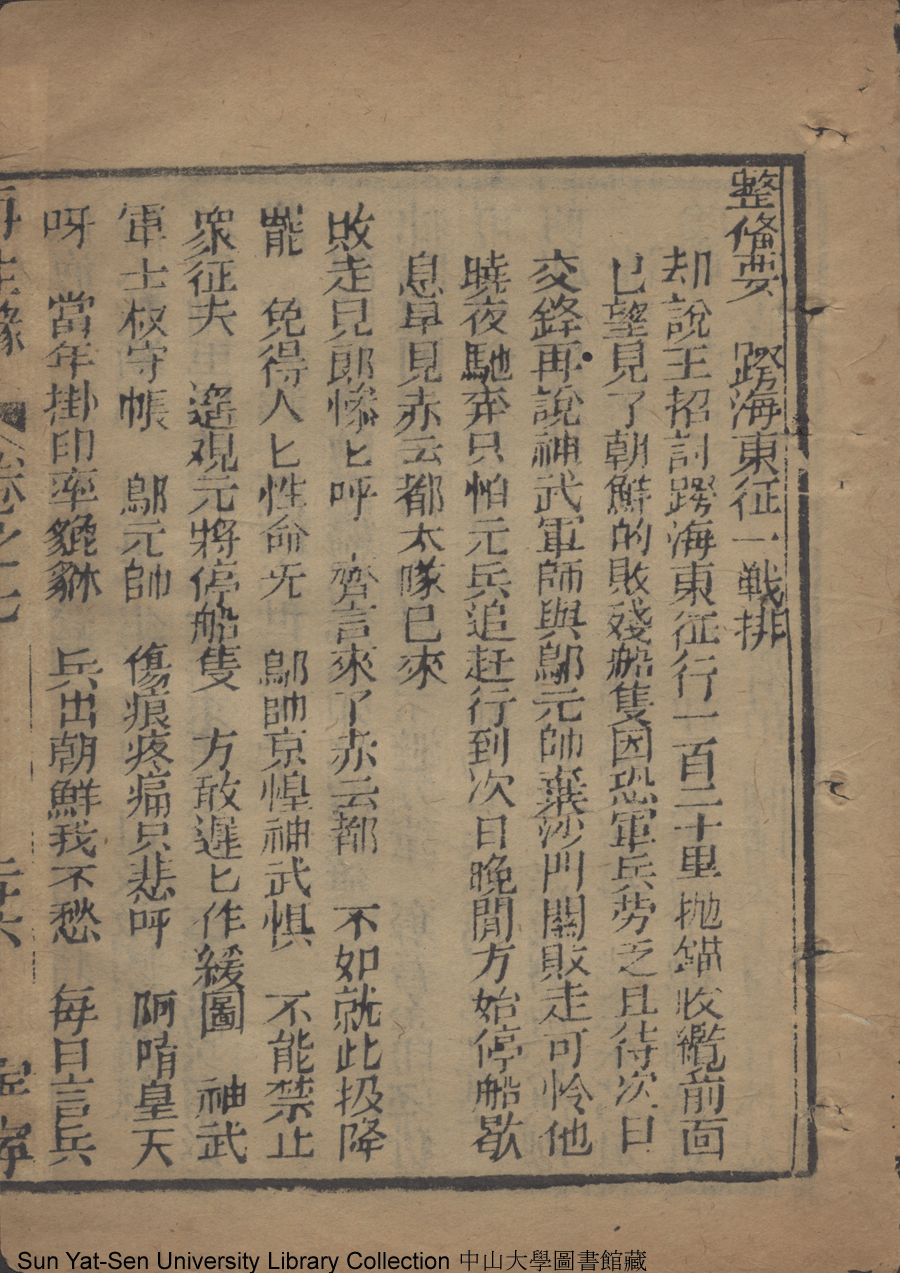 整備要　跨海東征一戦排
却說王招討跨海東征行一百二十里抛錨收纜前面
已望見了朝鮮的敗殘船隻因恐軍兵劳乏且待次日
交鋒再說神武軍師與鄔元帥棄沙門關敗走可怜他
曉夜馳奔只怕元兵追赶行到次日晚間方始停船歇
息早見赤云都大隊已來
敗走見郎慘匕呼　齊言來了赤云都　不如就此扱降
罷　免得人匕性命无　鄔帥京惶神武惧　不能禁止
衆征夫　遙观元將停船隻　方敢遲匕作緩圖　神武
軍士权守帳　鄔元帥　傷痕疼痛只悲呼　阿唷皇天
呀　當年掛印率貔貅　兵出朝鮮我不愁　每日言兵
再生緣　卷之七
Sun Yat-Sen University Library Collection 中山大學圖書館藏